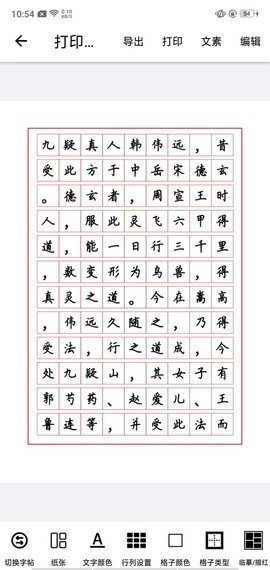 10:54
0.10
KB/S
54
打印...
导出
打印
文素
编辑
九疑真人韩伟远，昔
受此方于中岳宋德玄
。德玄者，周宣王时
人，服此灵飞六甲得
道，能一日行三千里
，数变形为鸟兽，得
真灵之道。今在嵩高
，伟远久随之，乃得
受法，行之道成，今
处九疑山，其女子有
郭芍药、赵爱儿、王
鲁连等，并受此法而
切换字帖
纸张
文字颜色
行列设置
格子颜色
格子类型
临摹/描红